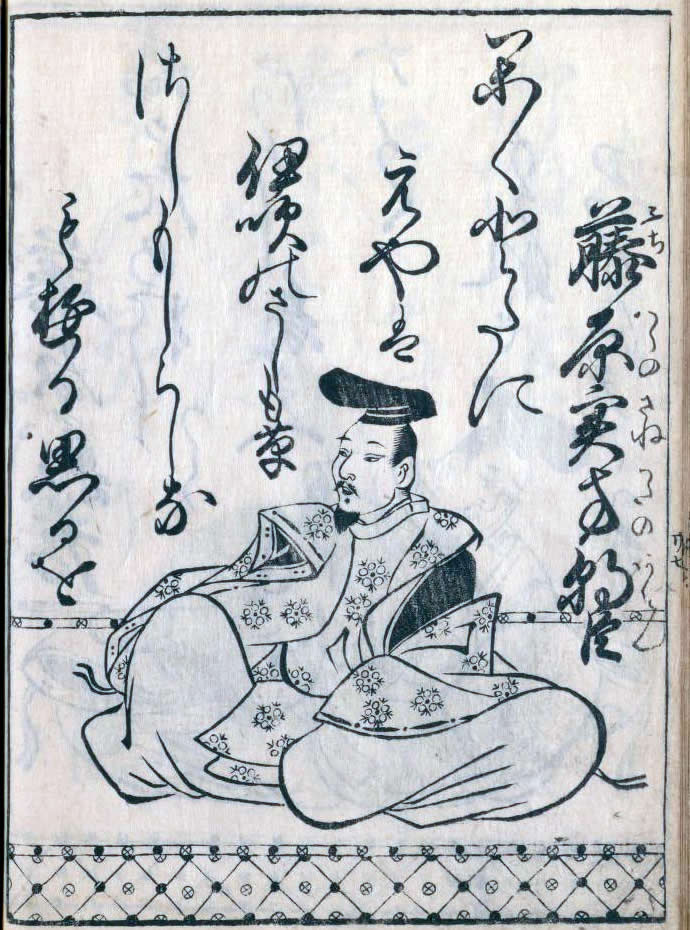 藤原実方朝臣
ふぢはらのさねかたのあそん
かくとたに
えやは
伊吹のさしも草
さしもしらしな
もゆる思ひを